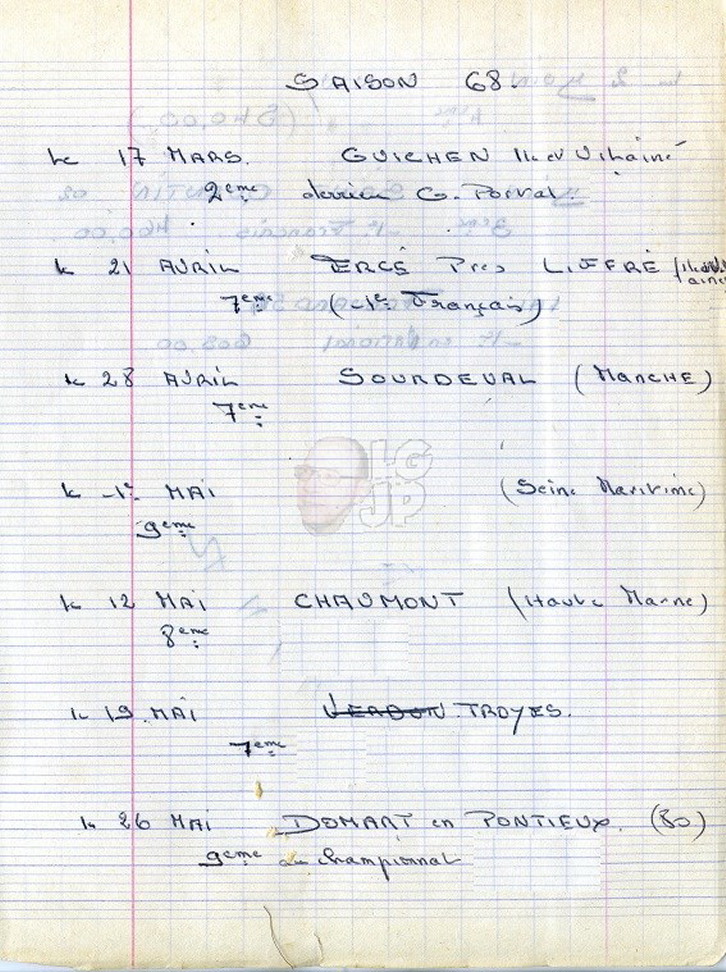 SAISON 68.
Le 17 MARS. GUICHEN Ile et Vilaine
2eme derrière G. Porval.
le 21 AVRIL TERCÉ Pres LIFFRÉ
7eme (-1er Français)
le 28 AVRIL SOURDEVAL (MANCHE)
7eme
le -1er MAI (Seine Maritime)
9eme
le 12 MAI CHAUMONT (Haute Marne)
8eme
le 19. MAI VERDUN. TROYES.
7eme
le 26 MAI DOMART en PONTIEUX. (80)
9eme au championnat
LG
JP